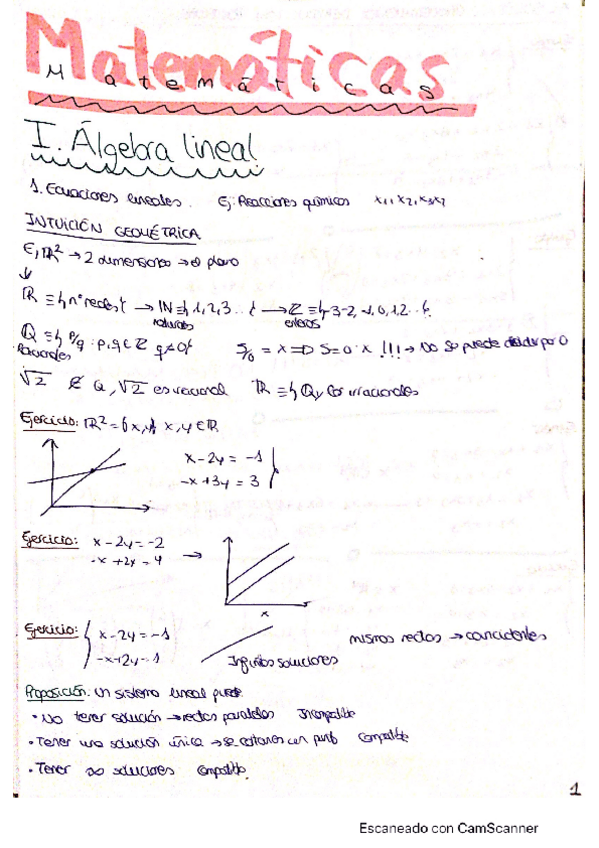 Matemáticas
Matemáticas
I. Álgebra lineal
1. Ecuaciones lineales. Ej: Reacciones químicas x₁, x₂, x₃, x₄
INTUICIÓN GEOMÉTRICA
ℝ² → 2 dimensiones → el plano
↓
ℝ ≡ {nº reales} → ℕ = {1, 2, 3... } → ℤ = {-3 -2, -1, 0, 1, 2...}
naturales enteros
ℚ = {p/q : p, q ∈ ℤ q≠0}
Racionales
5/0 = x ⇒ 5 = 0·x !!! → No se puede dividir por 0
√2 ∉ Q, √2 es irracional ℝ = {Q y los irracionales
Ejercicio: ℝ² = {x, y} x, y ∈ ℝ
x - 2y = -1
-x + 3y = 3
Ejercicio: x - 2y = -2
-x + 2y = 4 →
x
Ejercicio: x - 2y = -1
-x + 2y = 1
Infinitas soluciones
mismas rectas → coincidentes
Proposición: Un sistema lineal puede
• No tener solución → rectas paralelas Incompatible
• Tener una solución única → se cortan en un punto Compatible
• Tener ∞ soluciones Compatible
1
Escaneado con CamScanner